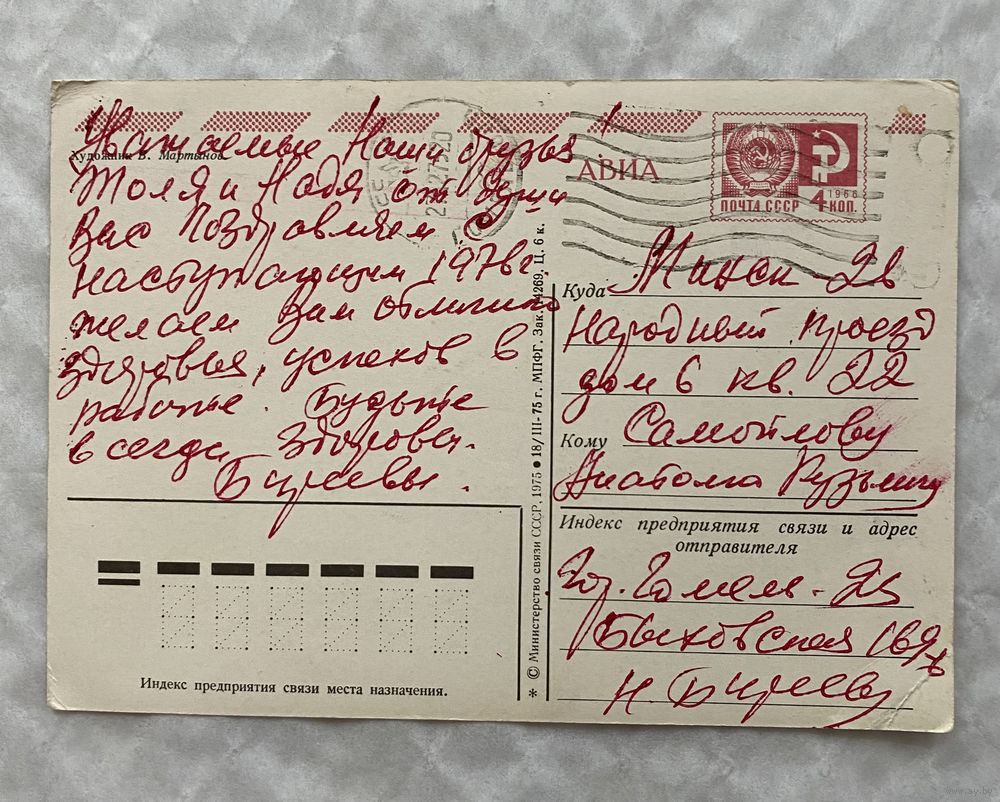 Художник В. Мартынов
Уважаемые Наши друзья!
Толя и Надя от души
Вас Поздравляем с
наступающим 1976г.
желаем Вам отличного
здоровья, успехов в
работе. Будьте
всегда Здоровы.
Индекс предприятия связи места назначения.
* © Министерство связи СССР, 1975 ● 18/III-75 г. МПФГ. Зак. 14269. Ц. 6 к.
АВИА
ПОЧТА СССР 4 КОП.
1966
Куда Минск-28
Народный проезд
дом 6 кв. 22
Кому Самойлову
Анатолию
Индекс предприятия связи и адрес
отправителя
гор. Гомель-
Быховская
Н.
www.ay.by